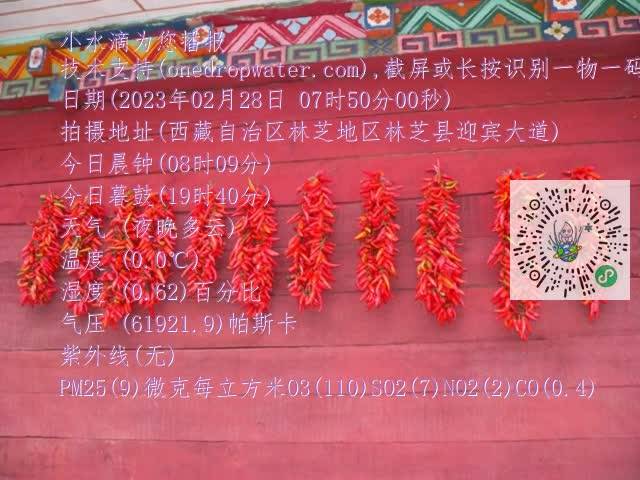 小水滴为您播报
技术支持(onedropwater.com),截屏或长按识别一物一码
日期(2023年02月28日 07时50分00秒)
拍摄地址(西藏自治区林芝地区林芝县迎宾大道)
今日晨钟(08时09分)
今日暮鼓(19时40分)
天气 (夜晚多云)
温度 (0.0℃)
湿度 (0.62)百分比
气压 (61921.9)帕斯卡
紫外线(无)
PM25(9)微克每立方米O3(110)SO2(7)NO2(2)CO(0.4)